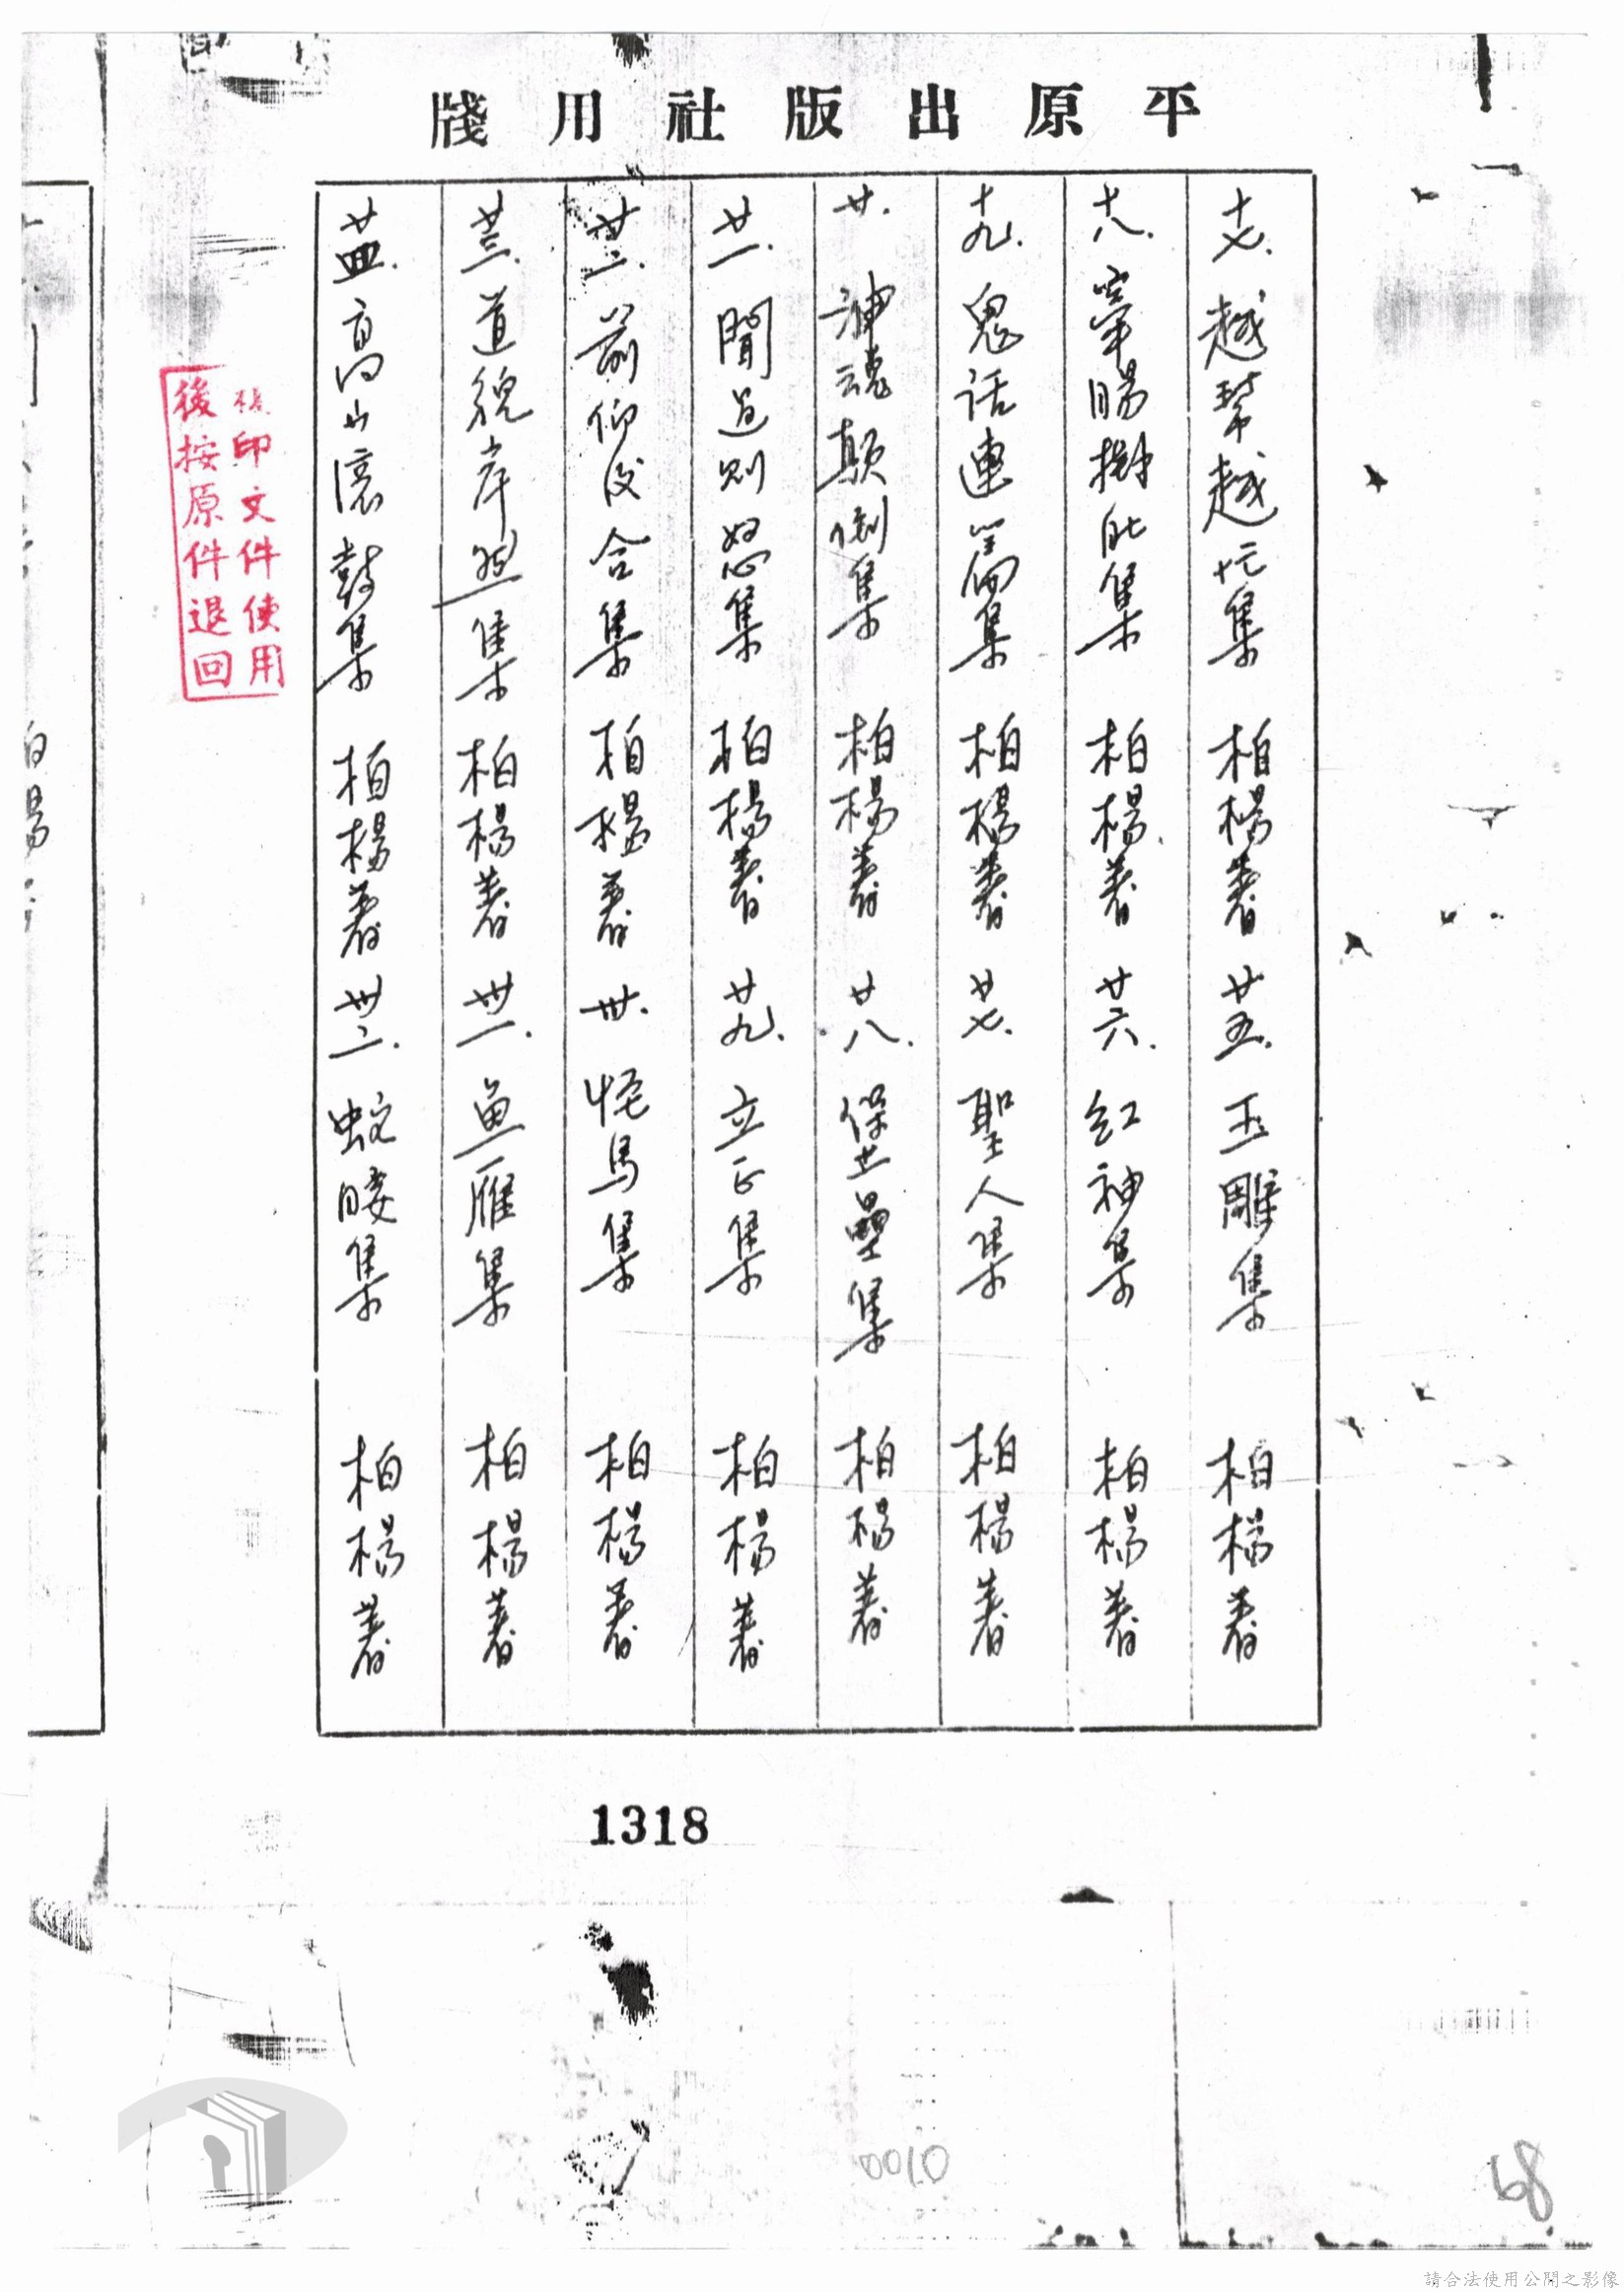 平原出版社用牋
十七.越幫越忙集 柏楊著 廿五.玉雕集 柏楊著
十八.牽腸掛肚集 柏楊著 廿六.紅袖集 柏楊著
十九.鬼話連篇集 柏楊著 廿七.聖人集 柏楊著
廿.神魂顛倒集 柏楊著 廿八.堡壘集 柏楊著
廿一.聞過則怒集 柏楊著 廿九.立正集 柏楊著
廿二.前仰後合集 柏楊著 卅.怪馬集 柏楊著
廿三.道貌岸然集 柏楊著 卅一.魚雁集 柏楊著
廿四.高山滾鼓集 柏楊著 卅二.蛇腰集 柏楊著
印文件使用
後按原件退回
1318
0010
68
請合法使用公開之影像